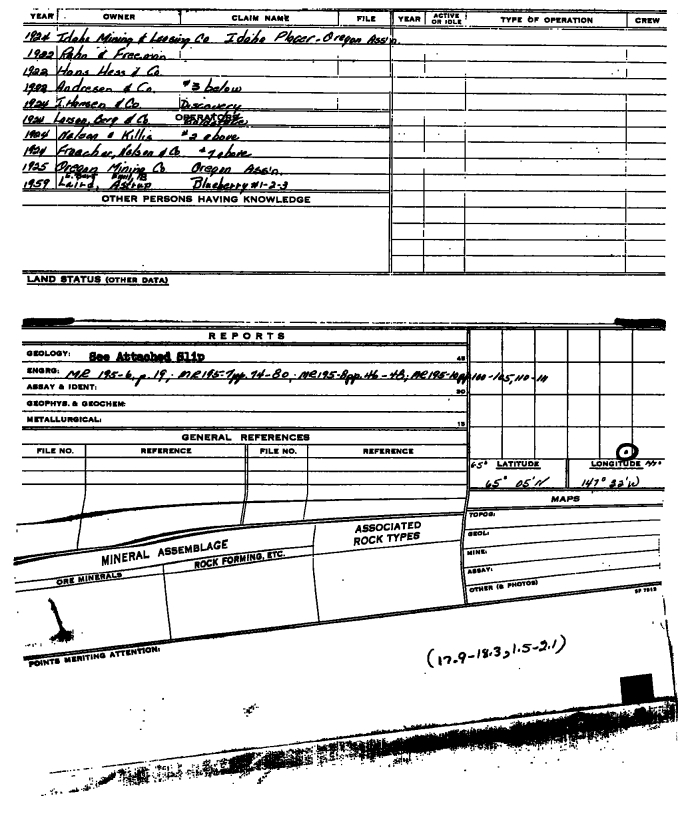 YEAR OWNER CLAIM NAME FILE YEAR ACTIVE OR IDLE TYPE OF OPERATION CREW
1924 Idaho Mining & Leasing Co Idaho Placer - Oregon Ass'n.
1922 Rahn & Freeman
1922 Hans Hess & Co.
1922 Andresen & Co. #3 below
1924 I. Hansen & Co. Discovery
1924 Larsen, Berg & Co. OPERATORS
1924 Nelson & Killis #2 above
1924 Freacher, Nelson & Co. #7 above
1925 Oregon Mining Co Oregon Ass'n.
1959 Laird, Astrup Blueberry #1-2-3
OTHER PERSONS HAVING KNOWLEDGE
LAND STATUS (OTHER DATA)
REPORTS
GEOLOGY: See Attached Slip 45
ENGRG: MR 195-6, p. 19; MR195-7 pp. 74-80; MR195-8 pp. 46-48; MR195-10 pp 100-105, 110-111
ASSAY & IDENT: 30
GEOPHYS. & GEOCHEM:
METALLURGICAL: 15
GENERAL REFERENCES
FILE NO. REFERENCE FILE NO. REFERENCE
65° LATITUDE LONGITUDE 147°
65° 05'N 147° 22'W
MAPS
TOPOG:
GEOL:
MINE:
ASSAY:
OTHER (& PHOTOS)
MINERAL ASSEMBLAGE ASSOCIATED ROCK TYPES
ORE MINERALS ROCK FORMING, ETC.
SP 7912
POINTS MERITING ATTENTION:
(17.9-18.3, 1.5-2.1)